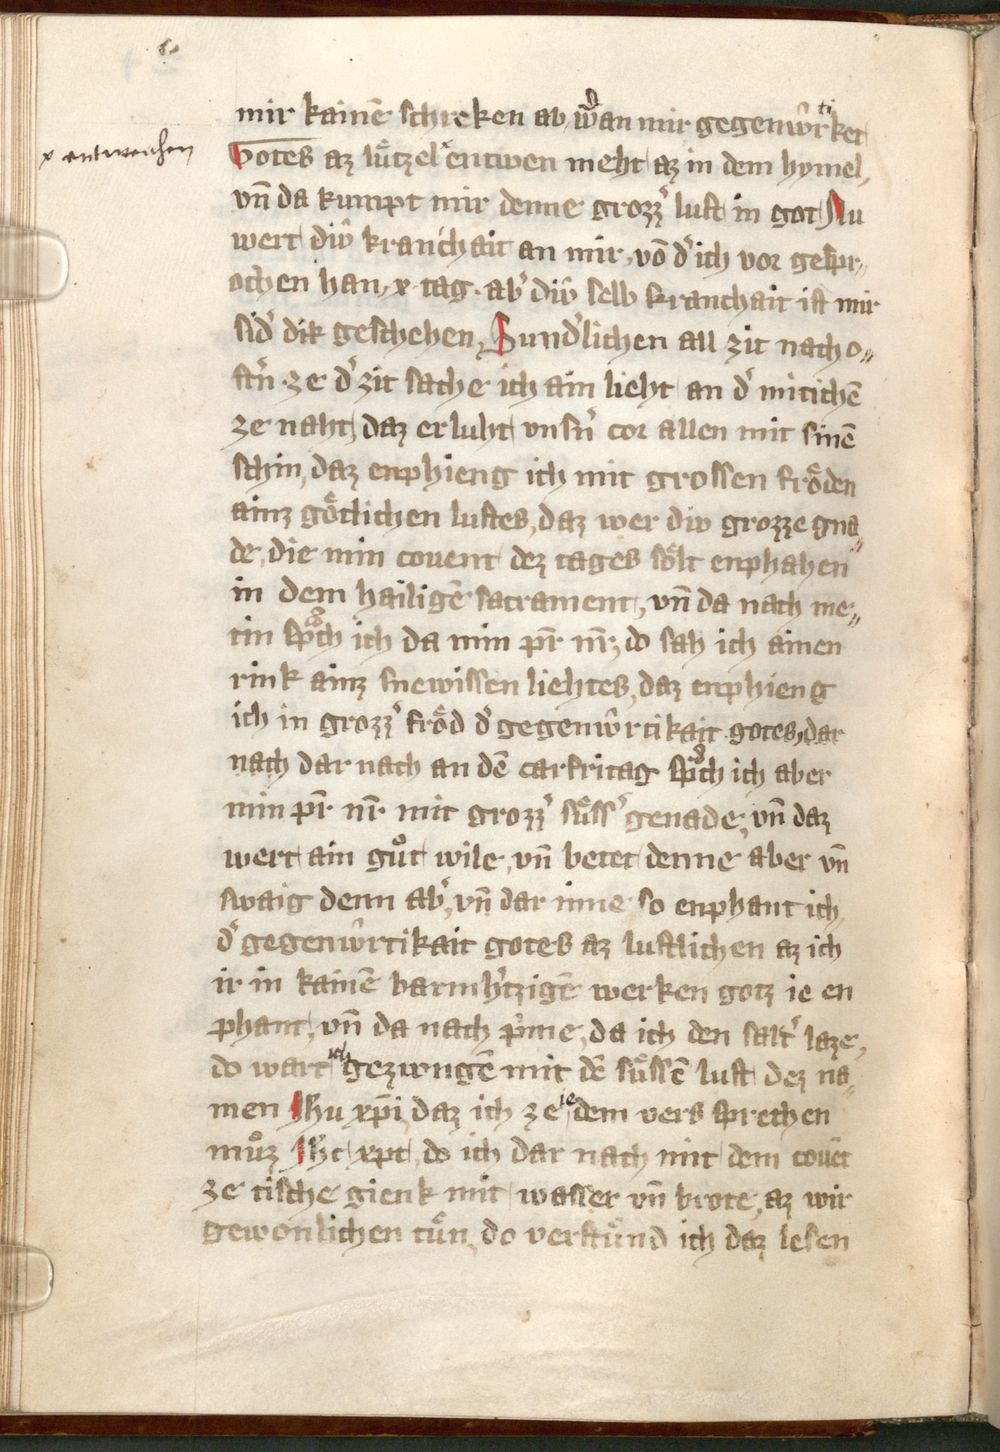 mir kainē schreken ab, wͣan mir gegenwᷓrtiket
x entweichen
Gotes az lᷓtzel entwen meht az in dem hymel,
vn̄ da kumpt mir denne grozz᾽ lust in got Nu
wert div̂ kranchait an mir, vō d᾽ ich vor gespr„
ochen han, x tag. ab᾽ div̂ selb kranchait ist mir
sid᾽ dik geschehen, Sund᾽lichen all zit nach o„
st᾽n. ze d᾽ zit sache ich ain lieht an d᾽ mitichē
ze naht, daz erluht vns᾽n cor allen mit sinē
schin, daz enphieng ich mit grossen frᷓden
ainz gᷓtlichen lustes, daz wer div grozze gna„
de, die min couent dez tages sᷓlt enphahen
in dem hailigē sacrament, vn̄ da nach me„
tin spͦch ich da min pr̄ nr̄, do sah ich ainen
rink ainz snewissen liehtes, daz enphieng
ich in grozz᾽ frᷓd d᾽ gegenwr̂tikait gotes, dar
nach dar nach an dē carfritag spͣch ich aber
min pr̄ nr̄ mit grozz᾽ sᷓss᾽ genade, vn̄ daz
wert ain guͦt wile, vn̄ betet denne aber vn̄
swaig denn ab᾽, vn̄ dar inne so enphant ich
d᾽ gegenwr̂tikait gotes az lustlichen az ich
ir in kainē barmh᾽tzigē werken gotz ie en
phant, vn̄ da nach p᾽me, da ich den salt᾽ laze,
do wart ich gezwngē mit dē sᷓssē lust dez na„
men Ihu xp̄i, daz ich ze ie dem vers sprechen
muͦz Ih᾽c xpt, do ich dar nach mit dem couēt
ze tische gienk mit wasser vn̄ brote, az wir
gewonlichen tᷓn, do verstᷓnd ich daz lesen